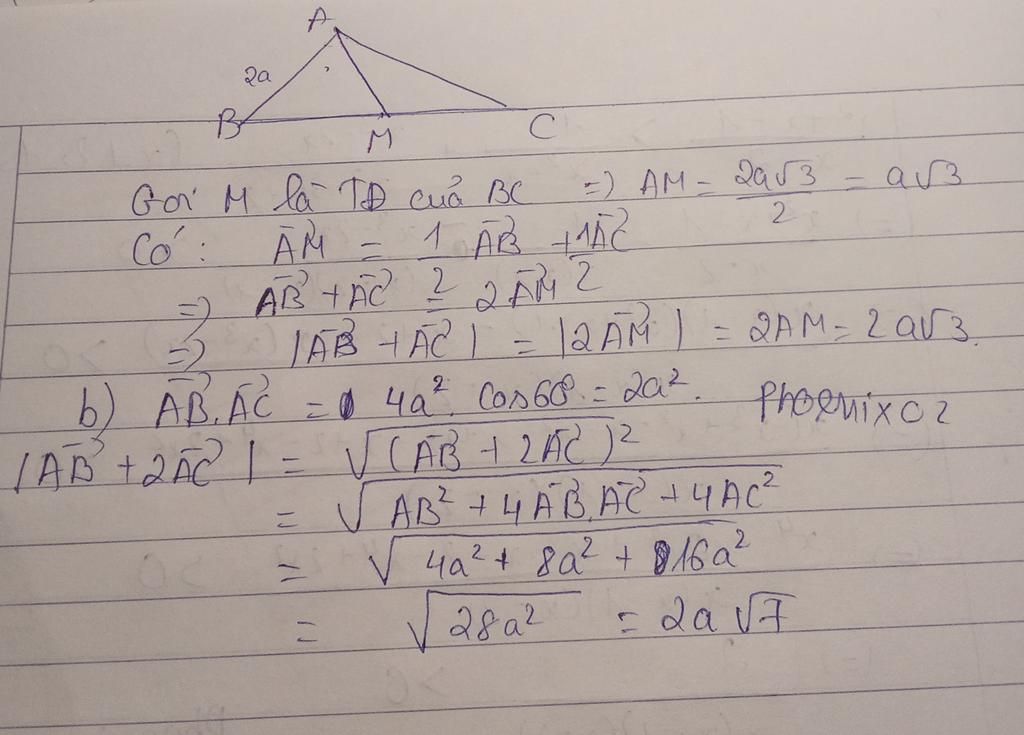 A
2a
B
M
C
Gọi M là TĐ của BC => AM = 2a√3/2 = a√3
Có: AM⃗ = 1/2 AB⃗ + 1/2 AC⃗
=> AB⃗ + AC⃗ = 2AM⃗
=> |AB⃗ + AC⃗| = |2AM⃗| = 2AM = 2a√3.
b) AB⃗.AC⃗ = 4a². cos60° = 2a². Phoenix02
|AB⃗ + 2AC⃗| = √(AB⃗ + 2AC⃗)²
= √AB² + 4AB⃗.AC⃗ + 4AC²
= √4a² + 8a² + 16a²
= √28a² = 2a√7